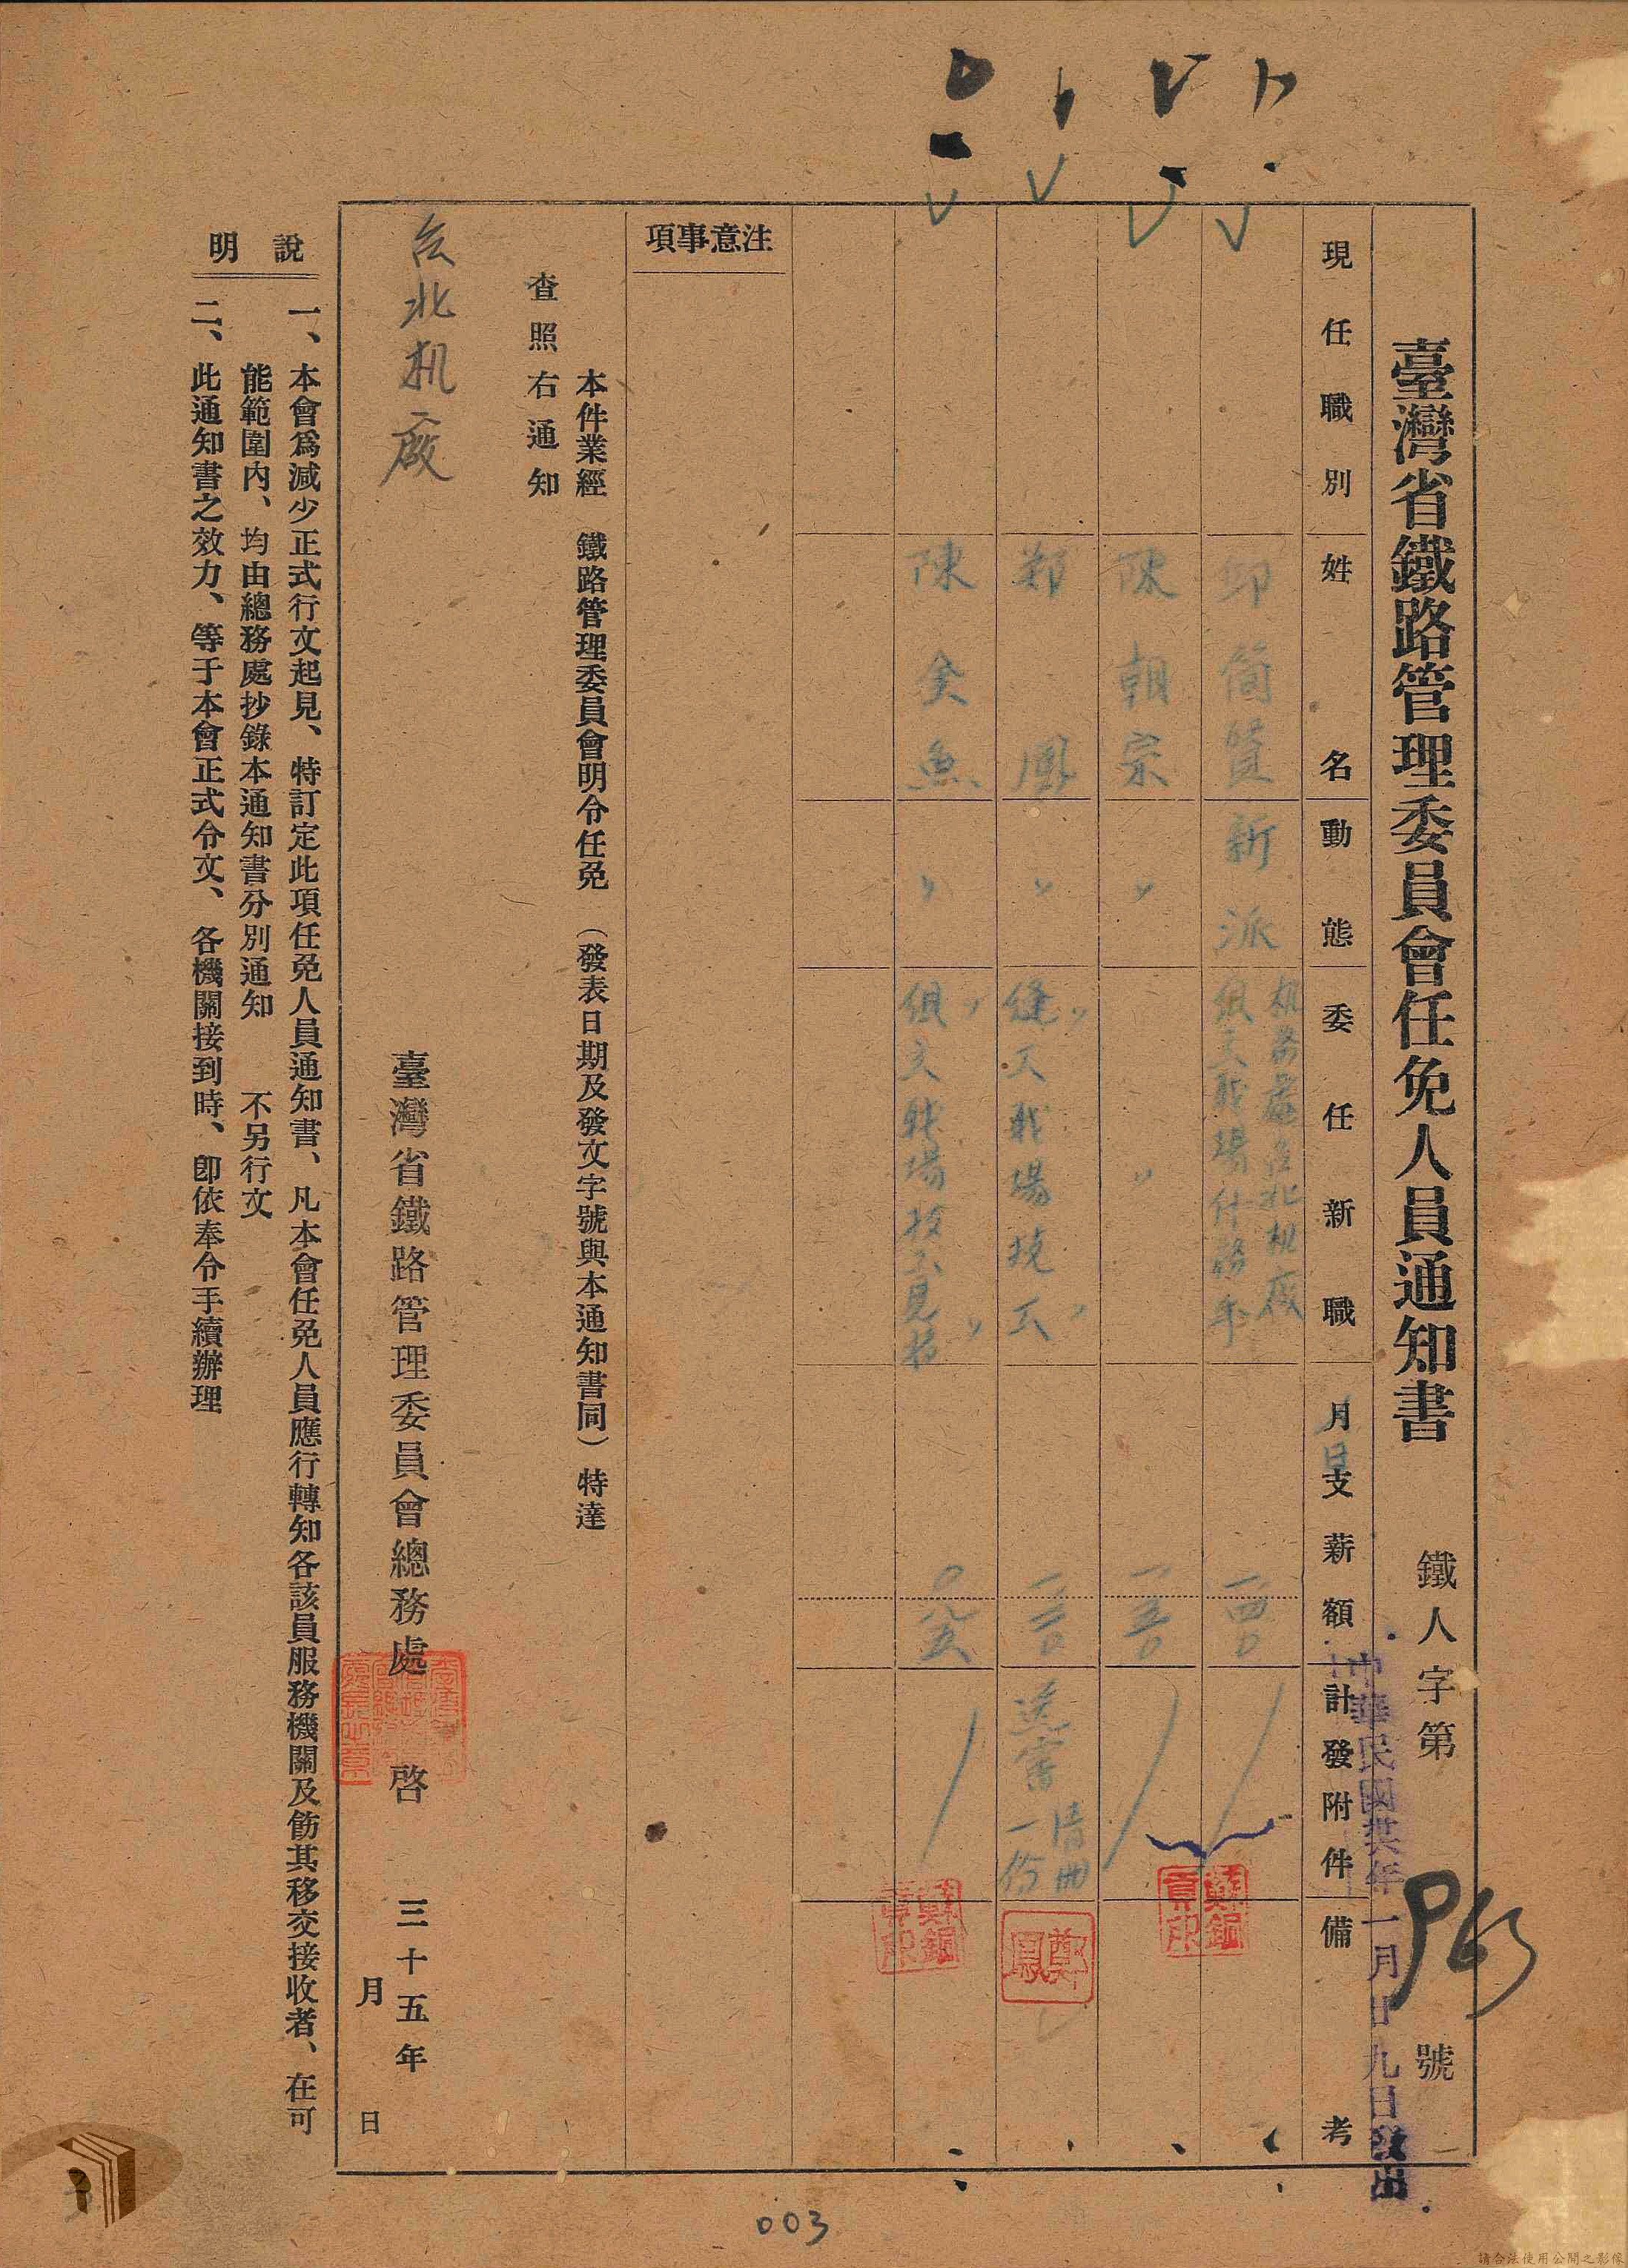 臺灣省鐵路管理委員會任免人員通知書
鐵人字第 號
中華民國 年一月廿九日發出
現任職別
姓名
動態
委任新職
月支薪額
日
計發附件
備考
邱簡賛
新派
机務處台北机廠
組立職場什務手
一四〇
陳朝宗
〃
〃
鄭鳳
〃
〃
縫工職場技工
送審書一份
鄭鳳
陳金魚
〃
〃
組立職場技工見習
〇八五
注意事項
本件業經 鐵路管理委員會明令任免 (發表日期及發文字號與本通知書同) 特達
查照右通知
台北机廠
臺灣省鐵路管理委員會總務處 啓
三十五年
月 日
說明
一、本會爲減少正式行文起見、特訂定此項任免人員通知書、凡本會任免人員應行轉知各該員服務機關及飭其移交接收者、在可
能範圍內、均由總務處抄錄本通知書分別通知 不另行文
二、此通知書之效力、等于本會正式令文、各機關接到時、卽依奉令手續辦理
003
請合法使用公開之影像